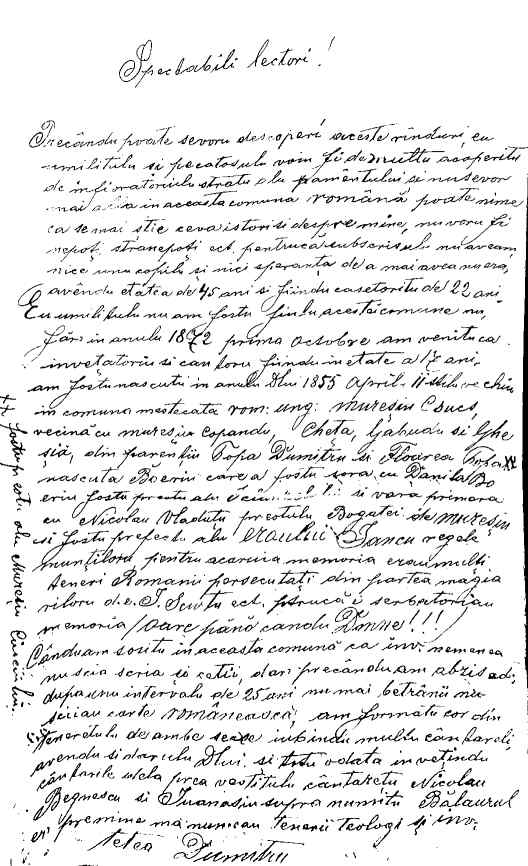 Spectabili lectori!
Trecându poate sevoru descoperi aceste rînduri, eu
umilitulu si pecatosulu voiu fi de multu acoperitu
de infioratoriulu stratu alu pamêntului si nu sevor
mai afla in aceasta comuna română poate nime
ca se mai stie ceva istorisi despre mine, nu voru fi
nepoți, strănepoți ect. pentrucă subscrisulu nu aveam
nice unu copilu si nici speranta de a mai avea nu era,
avêndu etatea de 45 ani si fiindu casetoritu de 22 ani
Eu umilitulu nu am fostu fiiulu acestei comune nu,
fără in anulu 1872 prima Octobre am venitu ca
invetatoriu si cantoru fiindu in etate a 17 ani,
am fostu nascutu in anulu Dlui 1855 April 11 stilu vechiu
in comuna mestecata rom: ung: Muresiu Ciucs,
vecină cu muresiu copandu, Cheta, Gabudu si Ghe
sia, din parenții Topa Dumitru si Floarea
nascuta Boeriu care a fostu sora cu Danila Bo
eriu fostu preotu alu si vara primara
cu Nicolau Vladutu preotulu Bogatei de muresiu
si fostu prefectu alu eroului Iancu regele
muntiloru pentru acaruia memoria erau multi
teneri Romani persecutați din partea magia
riloru d.e. I. Sciutu ect. ptrucă i serbatoriau
memoria / Oare pănă candu Domne!!!
Cânduam sositu in aceasta comună ca inv: nemenea
nu scia seria si ceti, dar precându am abzis adi
dupa unu intervalu de 25 ani numai betrânii nu
sciau carte românească, am formatu cor din
tenerotulu de ambe secse iubindu multu cântareli
avendu si darulu Dlui si totu odata invețindu
cântarile dela prea vestitulu cântaretu Nicolau
Begnescu si Iuanasiu supra numitu Bălaurul
er pe mine mă numeau tenerii teologi si inv.
tetea Dumitru
++ fostu preotu alu Muresiu Ciuciului.